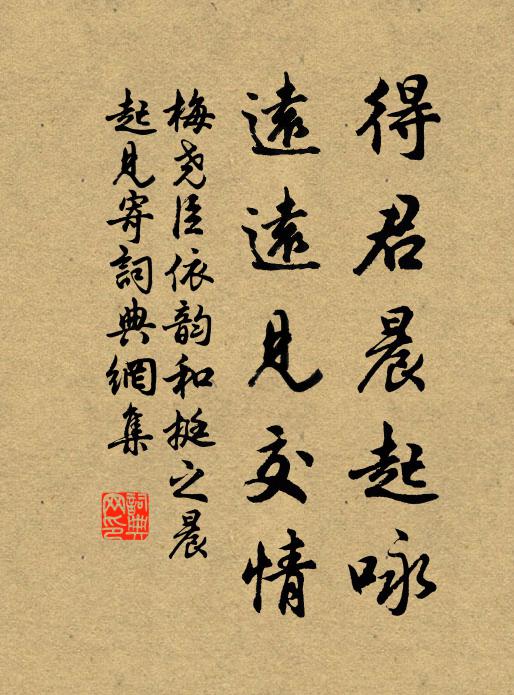 得君晨起咏
遠遠見交情
梅尧臣依韵和挺之晨
起見寄詞典網集
詞典網印